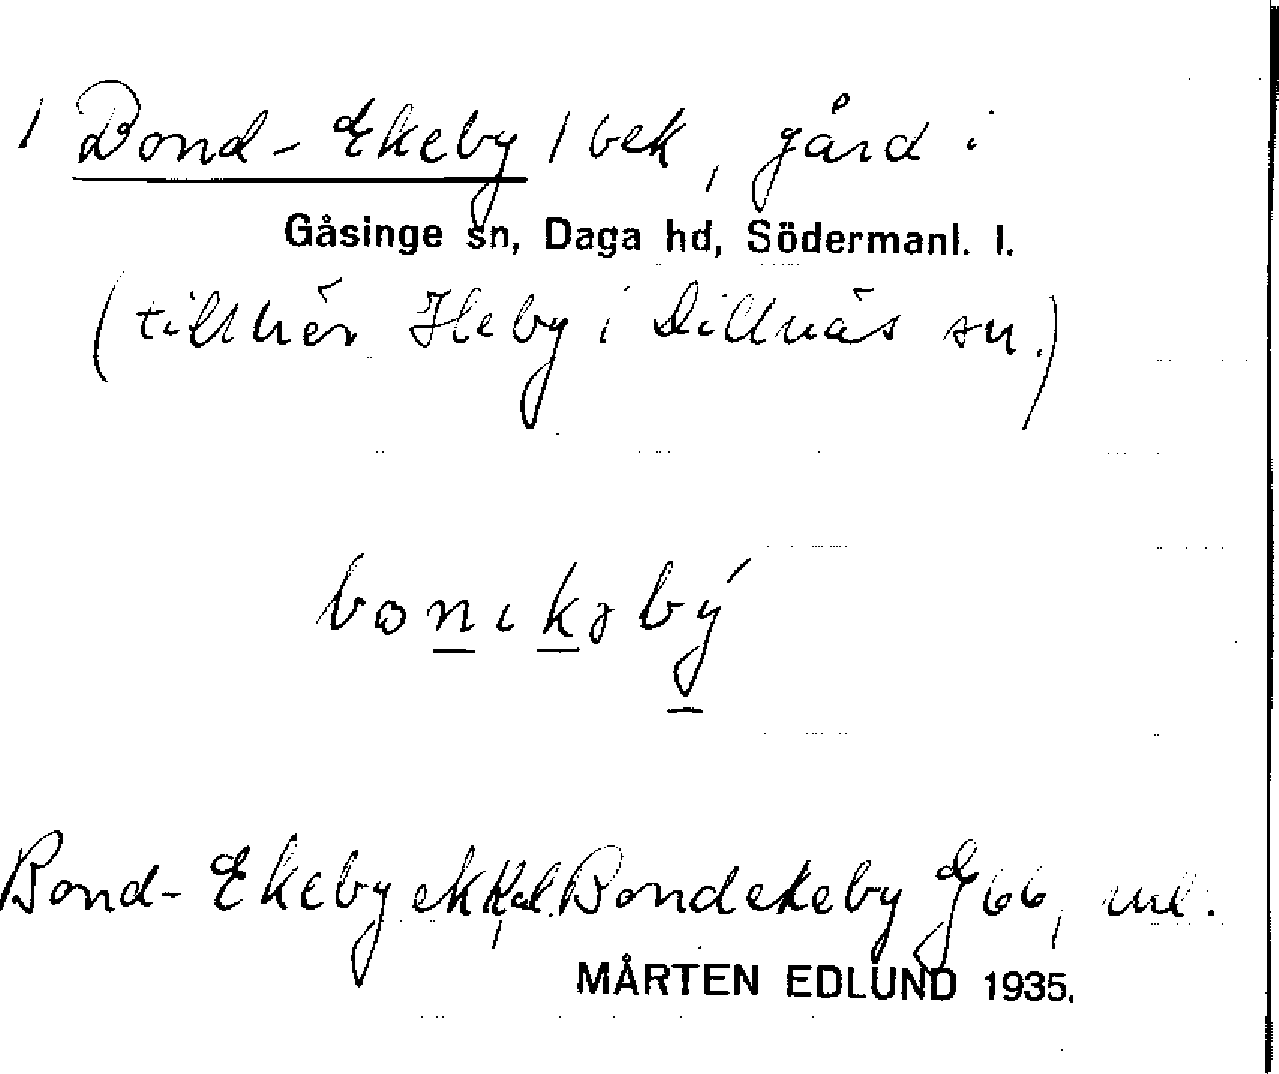 / Bond-Ekeby / bek, gård i
Gåsinge sn, Daga hd, Södermanl. l.
(tillhör Heby i Dillnäs sn.)
Bond-Ekeby ek Kal. Bondekeby G 66, ul.
MÅRTEN EDLUND 1935.